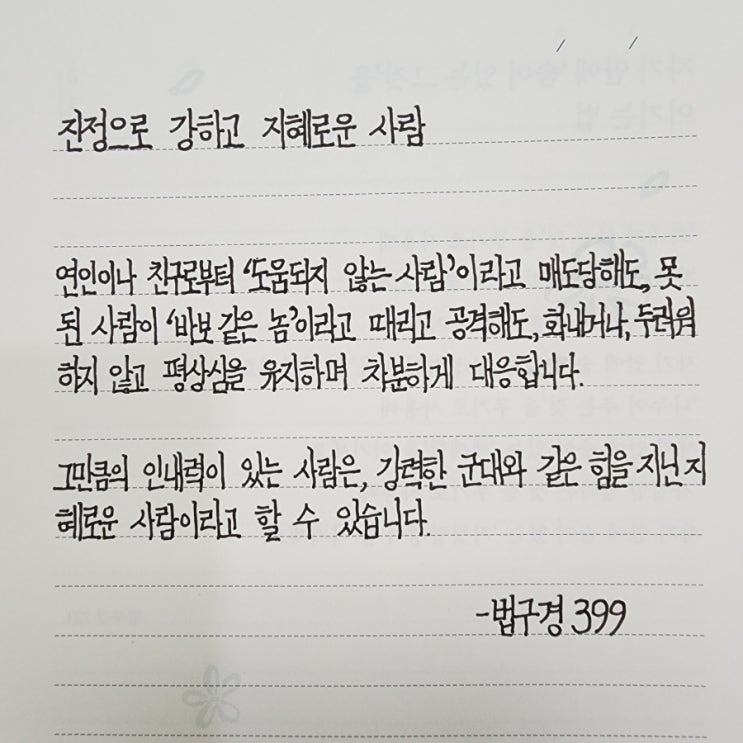 진정으로 강하고 지혜로운 사람
연인이나 친구로부터 '도움되지 않는 사람'이라고 매도당해도, 못
된 사람이 '바보 같은 놈'이라고 때리고 공격해도, 화내거나, 두려워
하지 않고 평상심을 유지하며 차분하게 대응합니다.
그만큼의 인내력이 있는 사람은, 강력한 군대와 같은 힘을 지닌 지
혜로운 사람이라고 할 수 있습니다.
-법구경 399